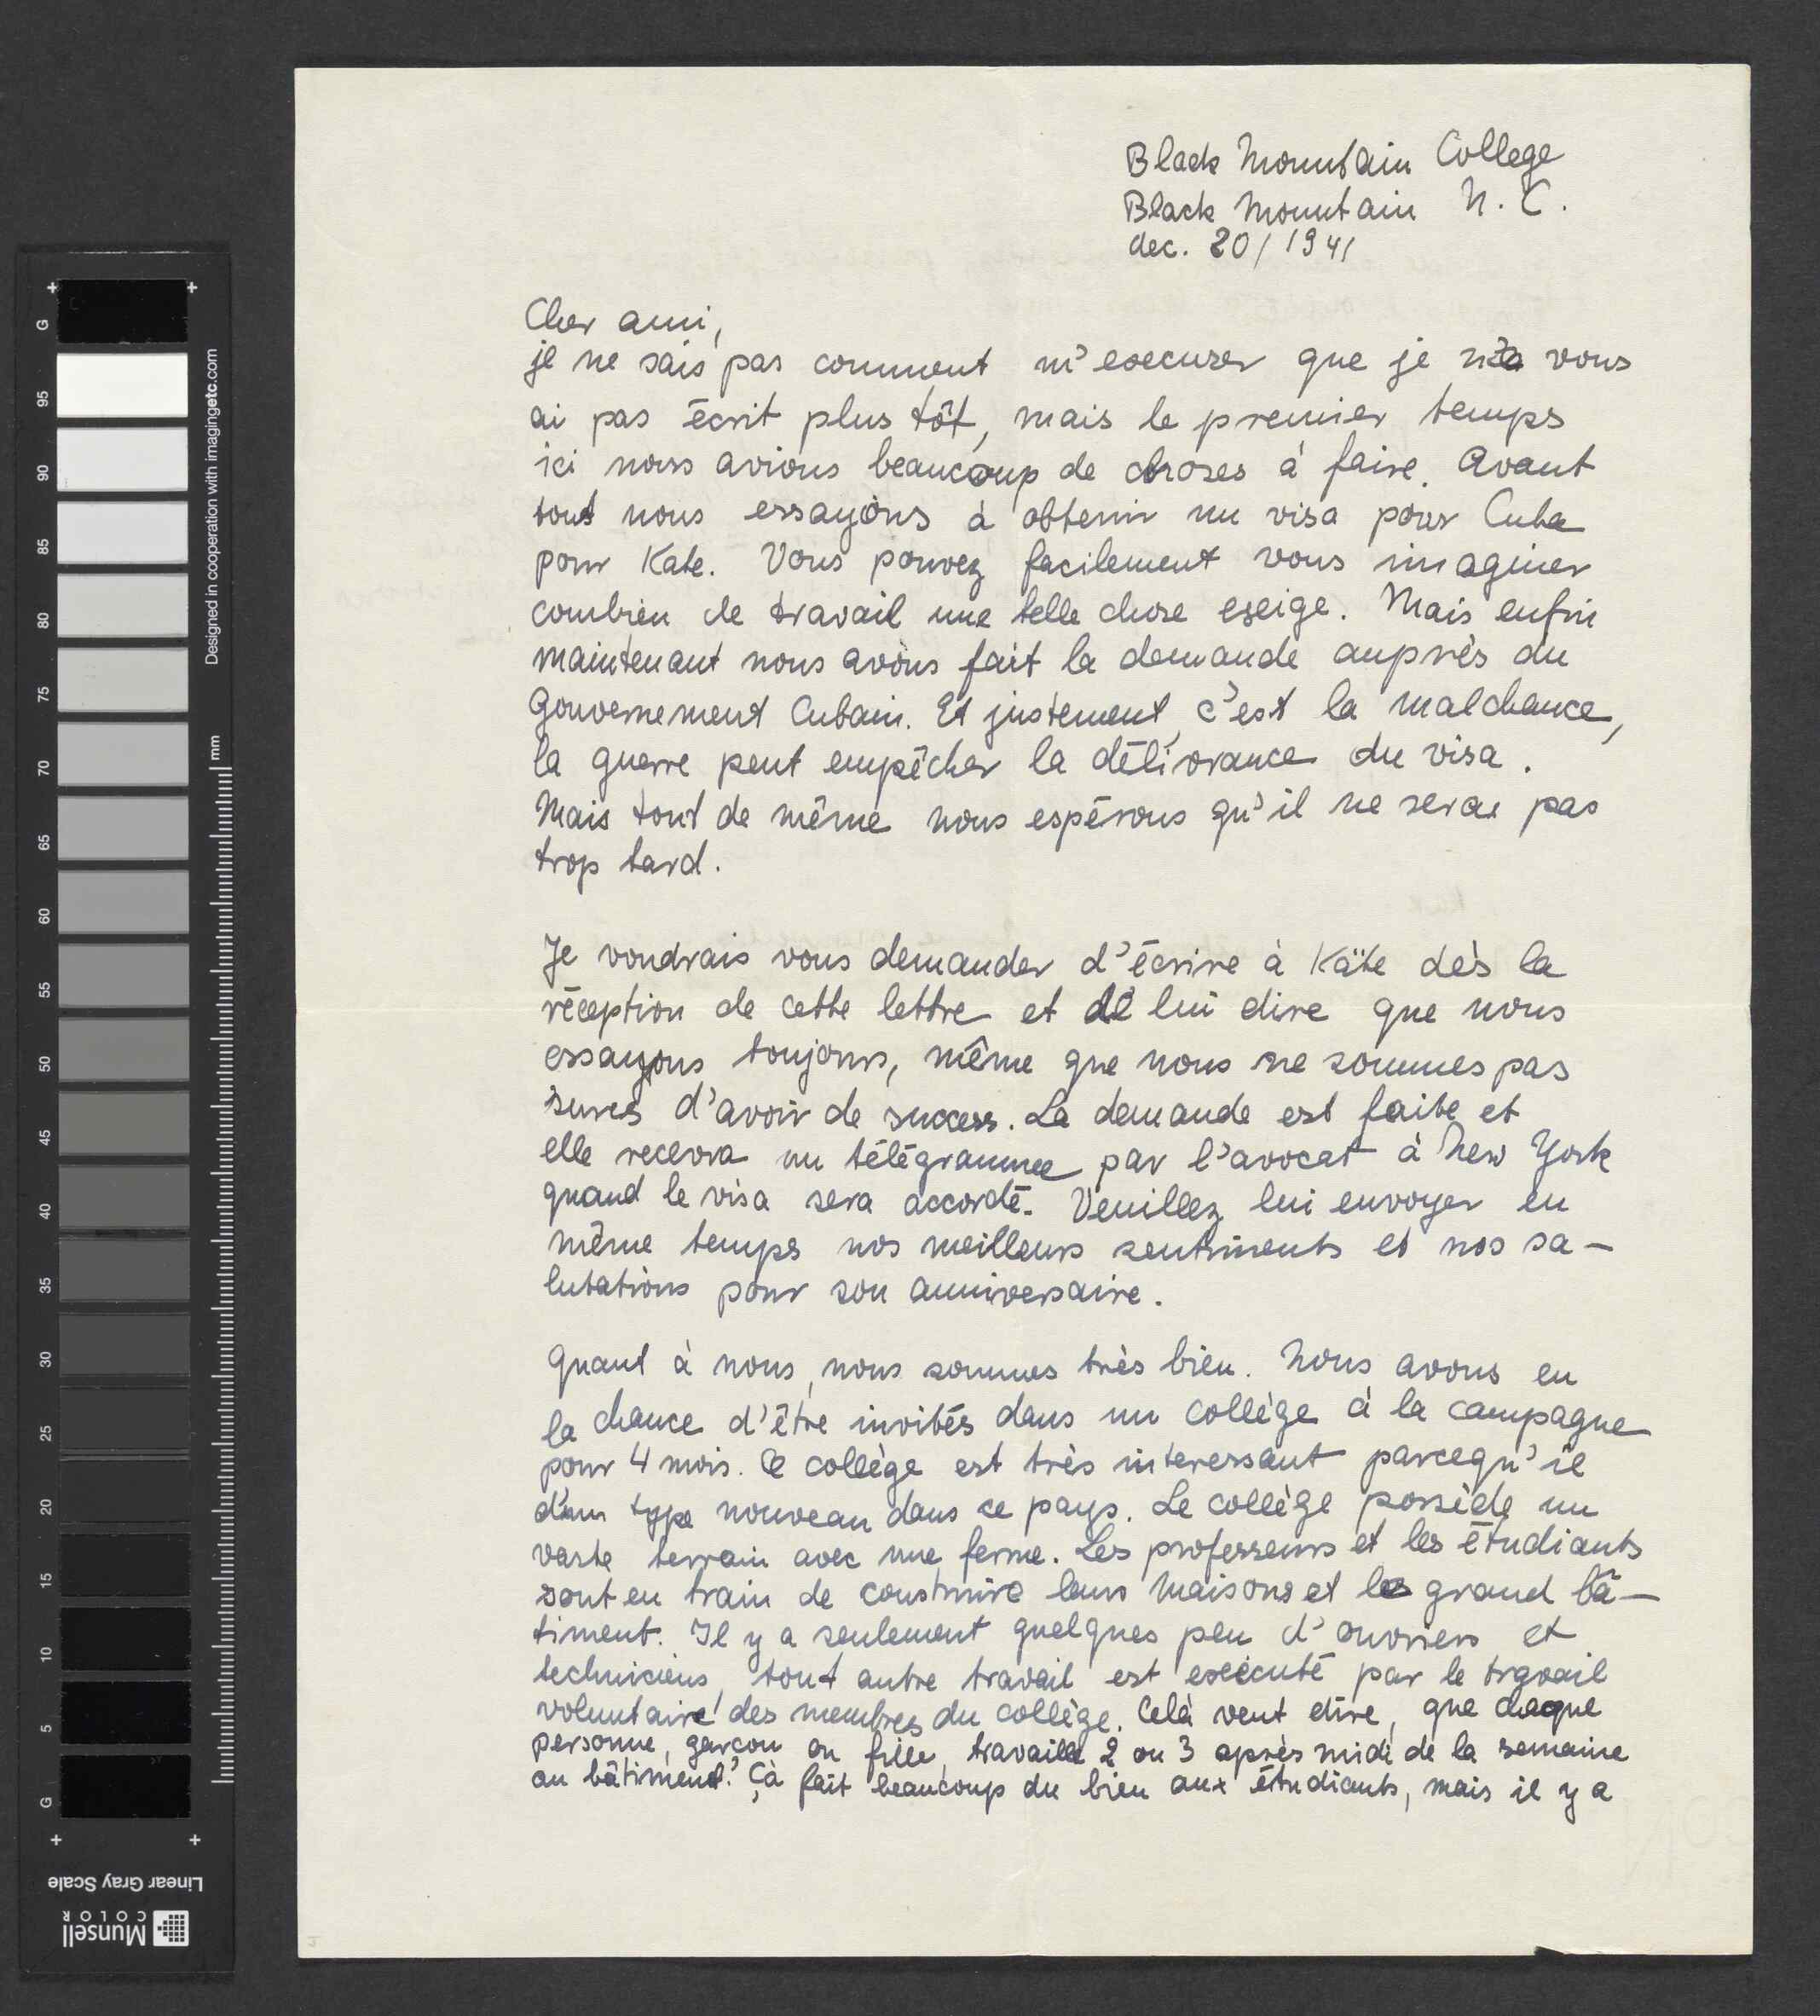 Black Mountain College
Black Mountain N. C.
dec. 20/1941
Cher ami,
je ne sais pas comment m'excuser que je ne vous
ai pas écrit plus tôt, mais le premier temps
ici nous avions beaucoup de choses à faire. Avant
tout nous essayons à obtenir un visa pour Cuba
pour Kate. Vous pouvez facilement vous imaginer
combien de travail une telle chose exige. Mais enfin
maintenant nous avons fait la demande auprès du
Gouvernement Cubain. Et justement, c'est la malchance,
la guerre peut empêcher la délivrance du visa.
Mais tout de même nous espérons qu'il ne serai pas
trop tard.
Je voudrais vous demander d'écrire à Käte dès la
réception de cette lettre et de lui dire que nous
essayons toujours, même que nous ne sommes pas
sures d'avoir de success. La demande est faite et
elle recevra un télégramme par l'avocat à New York
quand le visa sera accordé. Veuillez lui envoyer en
même temps nos meilleurs sentiments et nos sa-
lutations pour son anniversaire.
Quant à nous, nous sommes très bien. Nous avons eu
la chance d'être invités dans un collège à la campagne
pour 4 mois. Ce collège est très interessant parcequ'il
d'un type nouveau dans ce pays. Le collège possède un
vaste terrain avec une ferme. Les professeurs et les étudiants
sont en train de construire leurs maisons et le grand bâ-
timent. Il y a seulement quelques peu d'ouvriers et
techniciens, tout autre travail est exécuté par le travail
voluntaire des membres du collège. Celà veut dire, que chaque
personne, garçon ou fille, travaille 2 ou 3 après midi de la semaine
au bâtiment. Çà fait beaucoup du bien aux étudiants, mais il y a
G
95
90
85
80
75
70
65
60
55
50
45
40
35
30
25
20
15
10
5
G
mm
Designed in cooperation with imagingetc.com
Linear Gray Scale
Munsell
COLOR